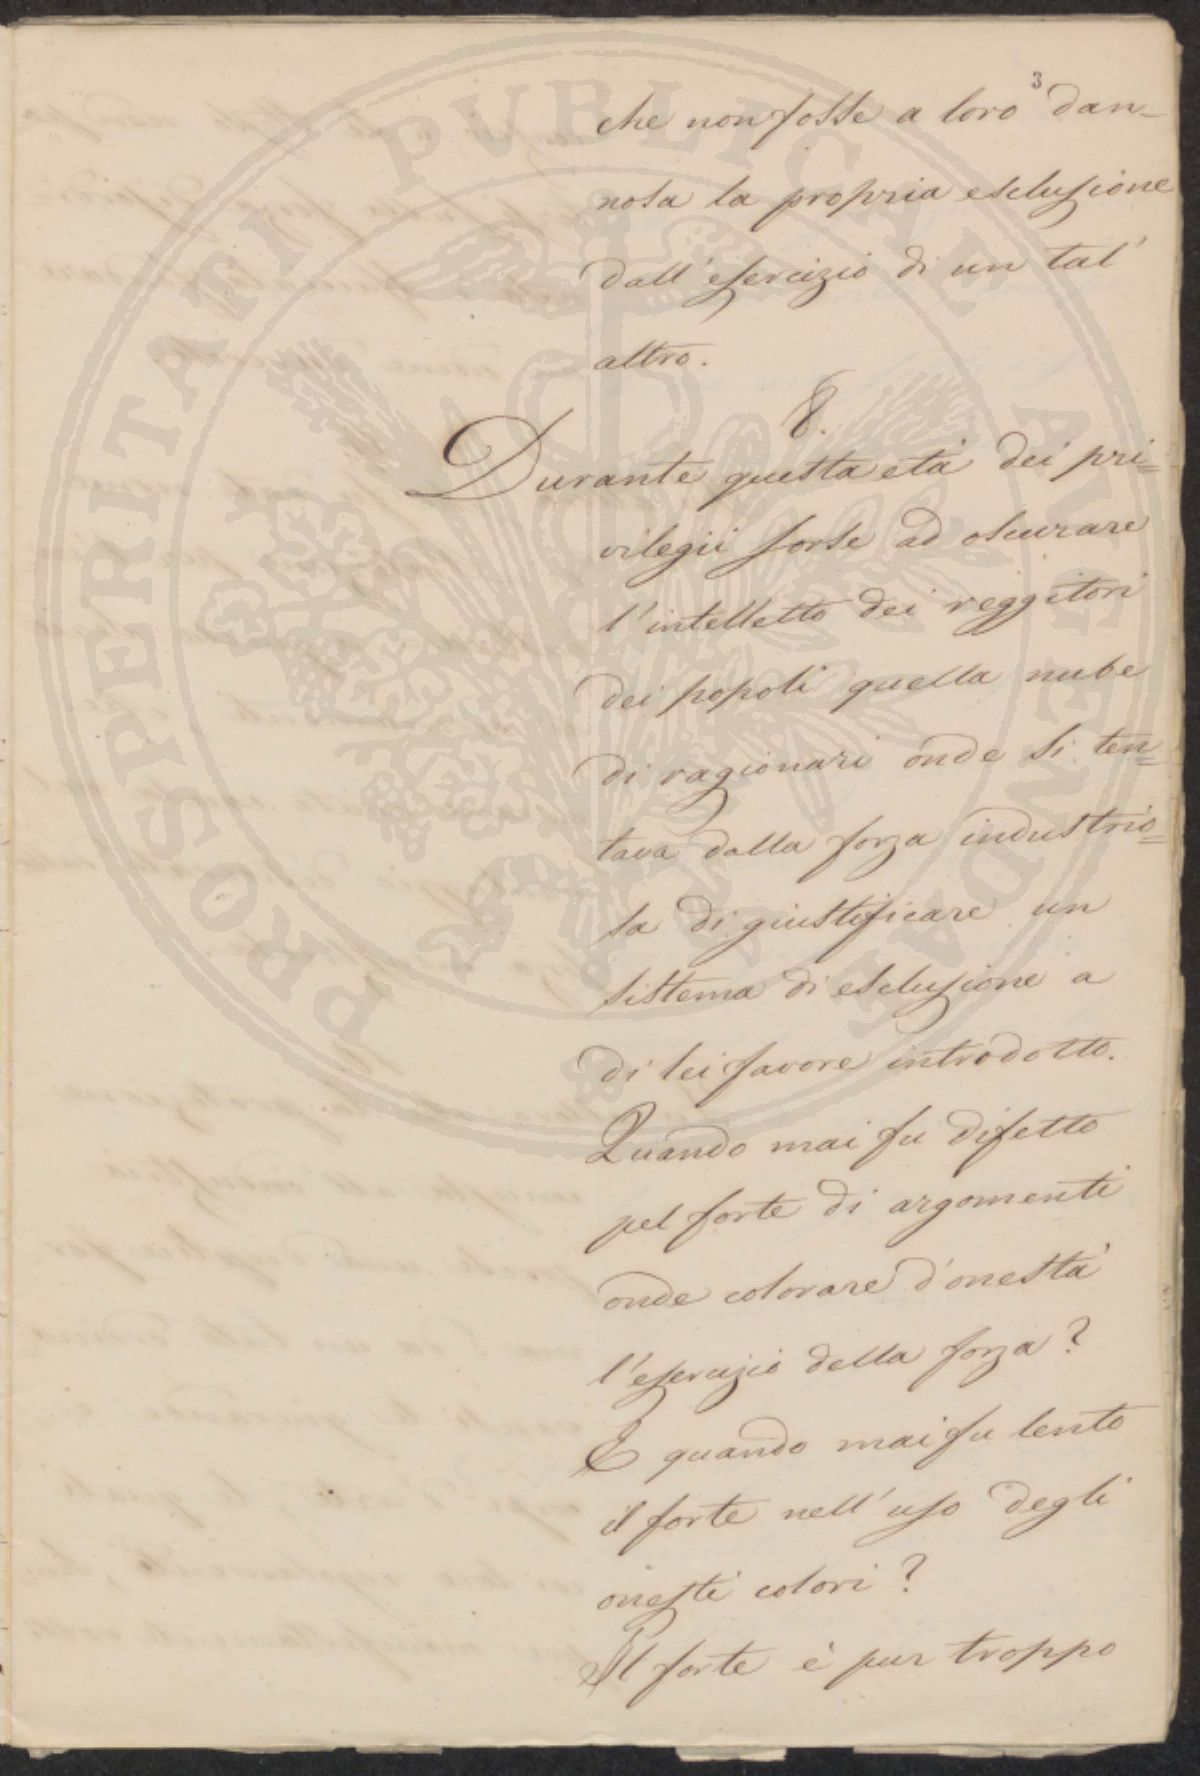 3
che non fosse a loro dan-
nosa la propria esclusione
dall'esercizio di un tal'
altro.
8.
Durante questa età dei pri=
vilegii sorse ad oscurare
l'intelletto dei reggitori
dei popoli quella nube
di ragionari onde si ten=
tava dalla forza industrio=
sa di giustificare un
sistema di esclusione a
di lei favore introdotto.
Quando mai fu difetto
pel forte di argomenti
onde colorare d'onestà
l'esercizio della forza?
E quando mai fu lento
il forte nell'uso degli
onesti colori?
Il forte è pur troppo
PROSPERITATI PUBLICAE AUGENDAE